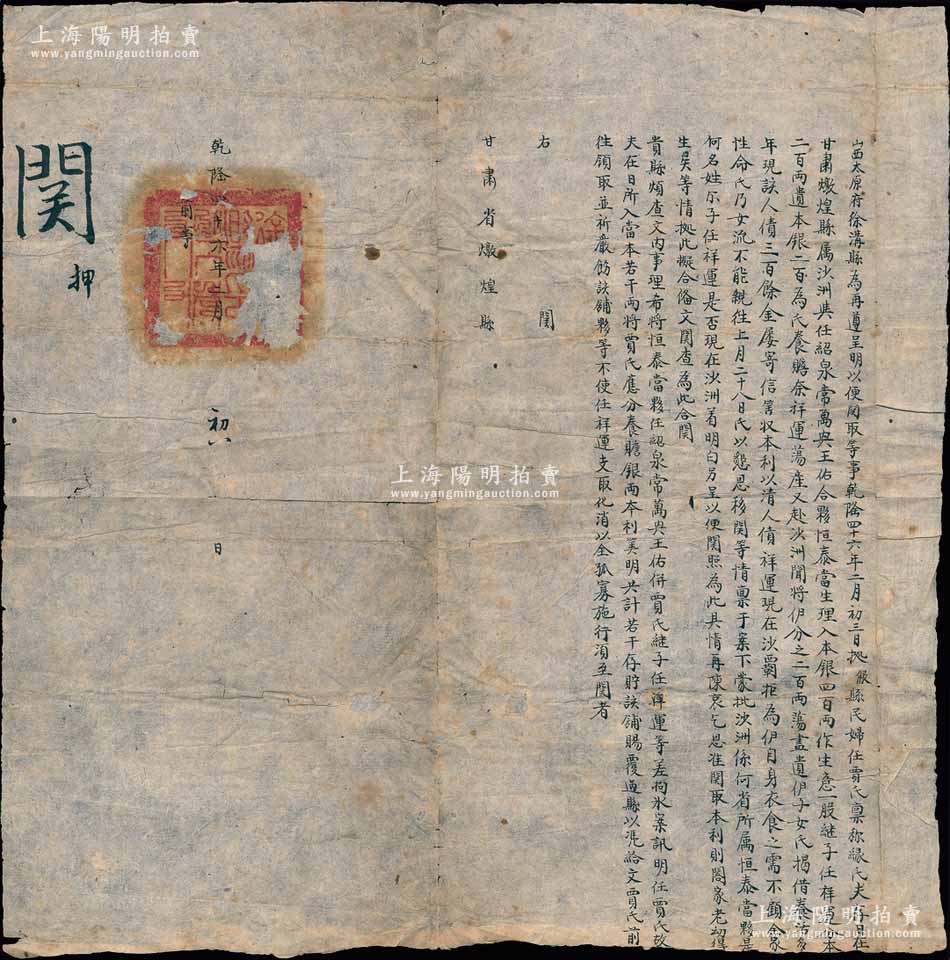 上海陽明拍賣
www.yangmingauction.com
山西太原府徐溝縣為再遵呈明以便関取等事乾隆四十六年二月初三日拠縣民婦任賈氏禀称縁氏夫存日在
甘肅燉煌縣属沙洲與任紹泉常萬與王佑合夥恒泰當生理入本銀四百両作生意一股継子任祥運本
二百両遺本銀二百為氏養贍奈祥運蕩産又赴沙洲聞将伊分之二百両蕩盡遺伊子女氏揭借養活多
年現該人債二百餘金屡寄信筭収本利以清人債祥運現在沙覇拒為伊自身衣食之需不顧合家
性命氏乃女流不能親往上月二十八日氏以懇恩移関等情禀于案下蒙批沙洲係何省所属恒泰當夥是
何名姓尓子任祥運是否現在沙洲着明白另呈以便関照為此具情再陳哀乞恩准関取本利則閤家老幼得
生矣等情拠此擬合俻文関查為此合関
貴縣煩查文内事理希将恒泰當夥任紹泉常萬與王佑併賈氏継子任祥運等差拘氷案訊明任賈氏故
夫在日所入當本若干両将賈氏應分養贍銀両本利筭明共計若干存貯該舖賜覆過縣以凴給文賈氏前
徃領取並祈嚴飭該舖夥等不使任祥運支取化消以全孤寡施行須至関者
右関
甘肅省燉煌縣
乾隆四十六年二月初八日
前事
関
押
上海陽明拍賣
www.yangmingauction.com
上海陽明拍賣
www.yangmingauction.com